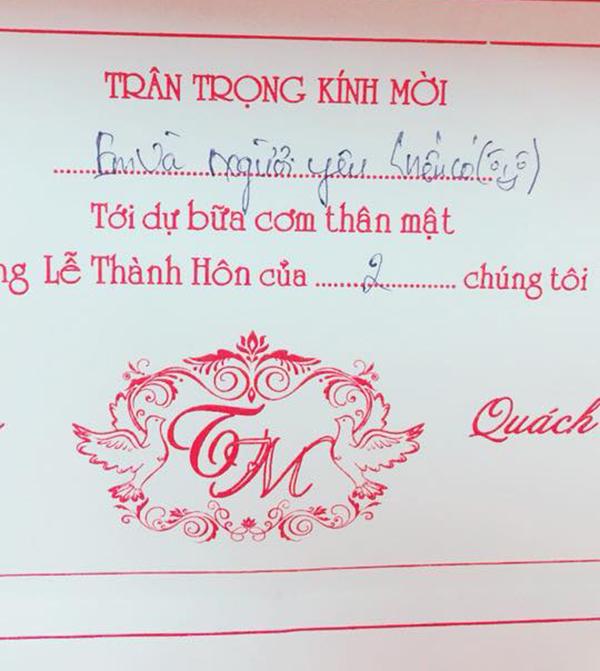 TRÂN TRỌNG KÍNH MỜI
Em và người yêu (nếu có)
Tới dự bữa cơm thân mật
ng Lễ Thành Hôn của ........2.............. chúng tôi
TM
Quách